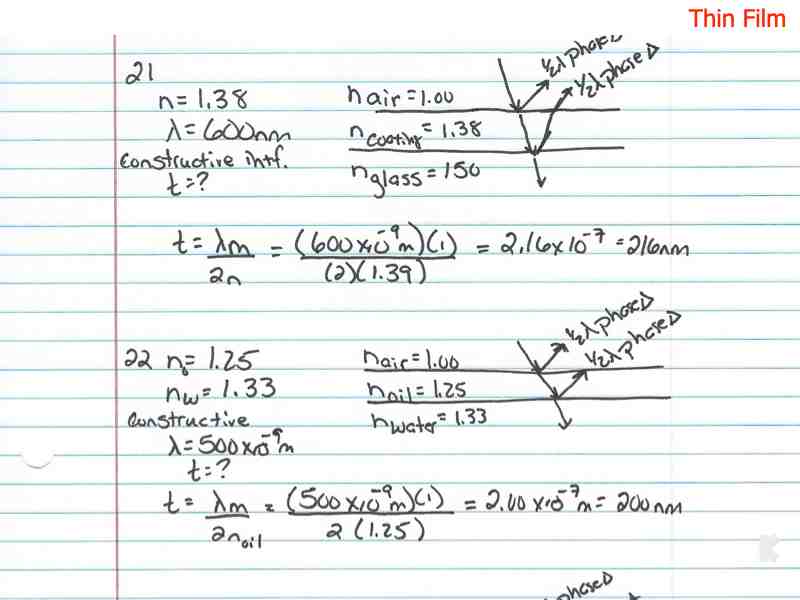 Thin Film
21
n = 1.38
λ = 600nm
constructive intf.
t = ?
n air = 1.00
n coating = 1.38
n glass = 150
½λ phase Δ
½λ phase Δ
t = λm / 2n = (600 x 10^-9 m)(1) / (2)(1.39) = 2.16 x 10^-7 = 216nm
22 n₀ = 1.25
n_w = 1.33
constructive
λ = 500 x 10^-9 m
t = ?
n air = 1.00
n oil = 1.25
n water = 1.33
½λ phase Δ
½λ phase Δ
t = λm / 2n_oil = (500 x 10^-9 m)(1) / 2(1.25) = 2.00 x 10^-7 m = 200nm
phase Δ